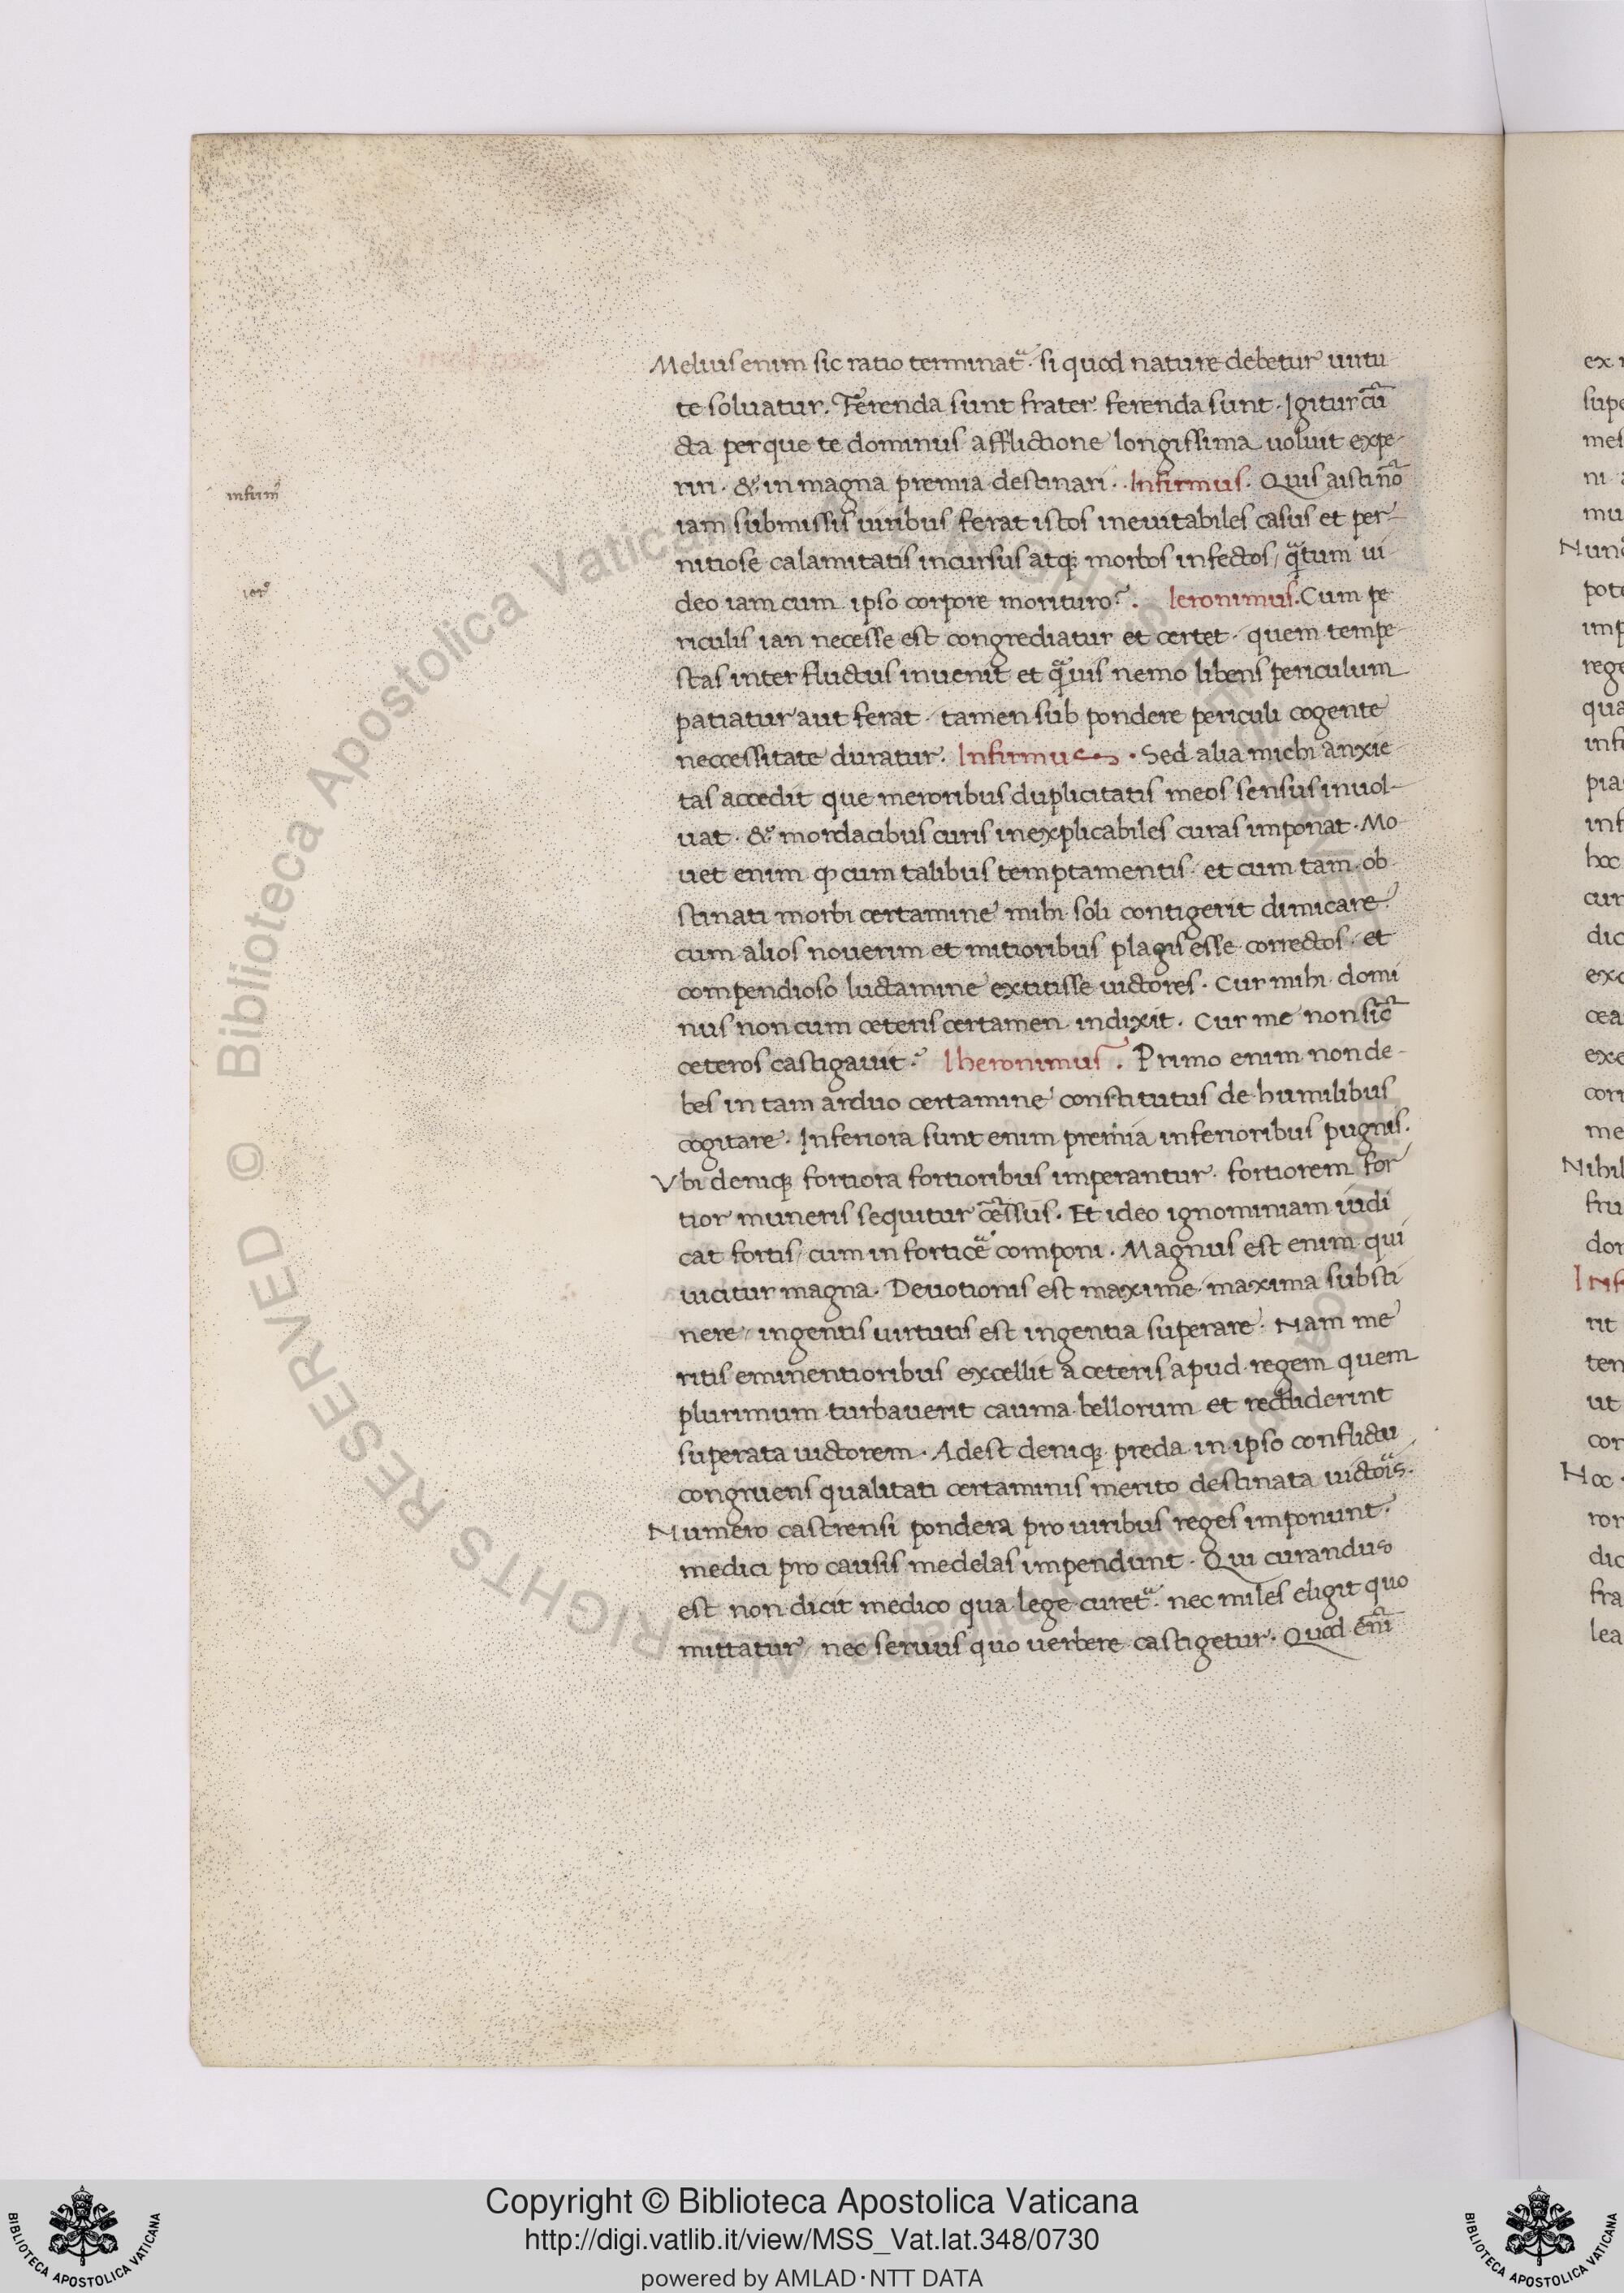 Melius enim sic ratio terminat᷑. si quod nature debetur uirtu
te soluatur. Ferenda sunt frater. ferenda sunt. Igitur cū
cta per que te dominus afflictione longissima uoluit expe-
riri. & in magna premia destinari. Infirmus. Quis aisti nō
infirm᷒
iam submissis uiribus ferat istos ineuitabiles casus et per-
nitiose calamitatis incursus atq; morbos infectos / qᵃtum ui
deo iam cum ipso corpore morituro? Ieronimus. Cum pe
ier᷒
riculis ian necesse est congrediatur et certet. quem tempe-
stas inter fluctus inuenit et qᵃuis nemo libens periculum
patiatur aut ferat. tamen sub pondere periculi cogente
neccessitate duratur. Infirmus. Sed alia michi anxie
tas accedit que meroribus duplicitatis meos sensus inuol-
uat. & mordacibus curis inexplicabiles curas imponat. Mo
uet enim ꝙ cum talibus temptamentis. et cum tam ob
stinati morbi certamine mihi soli contigerit dimicare.
cum alios nouerim et mitioribus plagis esse correctos. et
compendioso luctamine extitisse uictores. Cur mihi domi
nus non cum ceteris certamen indixit. Cur me non sic̄
ceteros castigauit? Iheronimus. Primo enim non de-
bes in tam arduo certamine constitutus de humilibus
cogitare. Inferiora sunt enim premia inferioribus pugnis.
Vbi deniq; fortiora fortioribus imperantur. fortiorem for
tior muneris sequitur cēssus. Et ideo ignominiam iudi
cat fortis / cum in forticᵃē componi. Magnus est enim qui
uicitur magna. Deuotionis est maxime maxima substi
nere / ingentis uirtutis est ingentia superare. Nam me
ritis eminentioribus excellit a ceteris apud regem quem
plurimum turbauerit cauma bellorum et reddiderint
superata uictorem. Adest deniq; preda in ipso conflictu
congruens qualitati certaminis merito destinata uictoᵃis.
Numero castrensi pondera pro uiribus reges imponunt.
medici pro causis medelas impendunt. Qui curandus
est non dicit medico qua lege curet᷑. nec miles eligit quo
mittatur / nec seruus quo uerbere castigetur. Quod enī
Copyright © Biblioteca Apostolica Vaticana
http://digi.vatlib.it/view/MSS_Vat.lat.348/0730
powered by AMLAD·NTT DATA